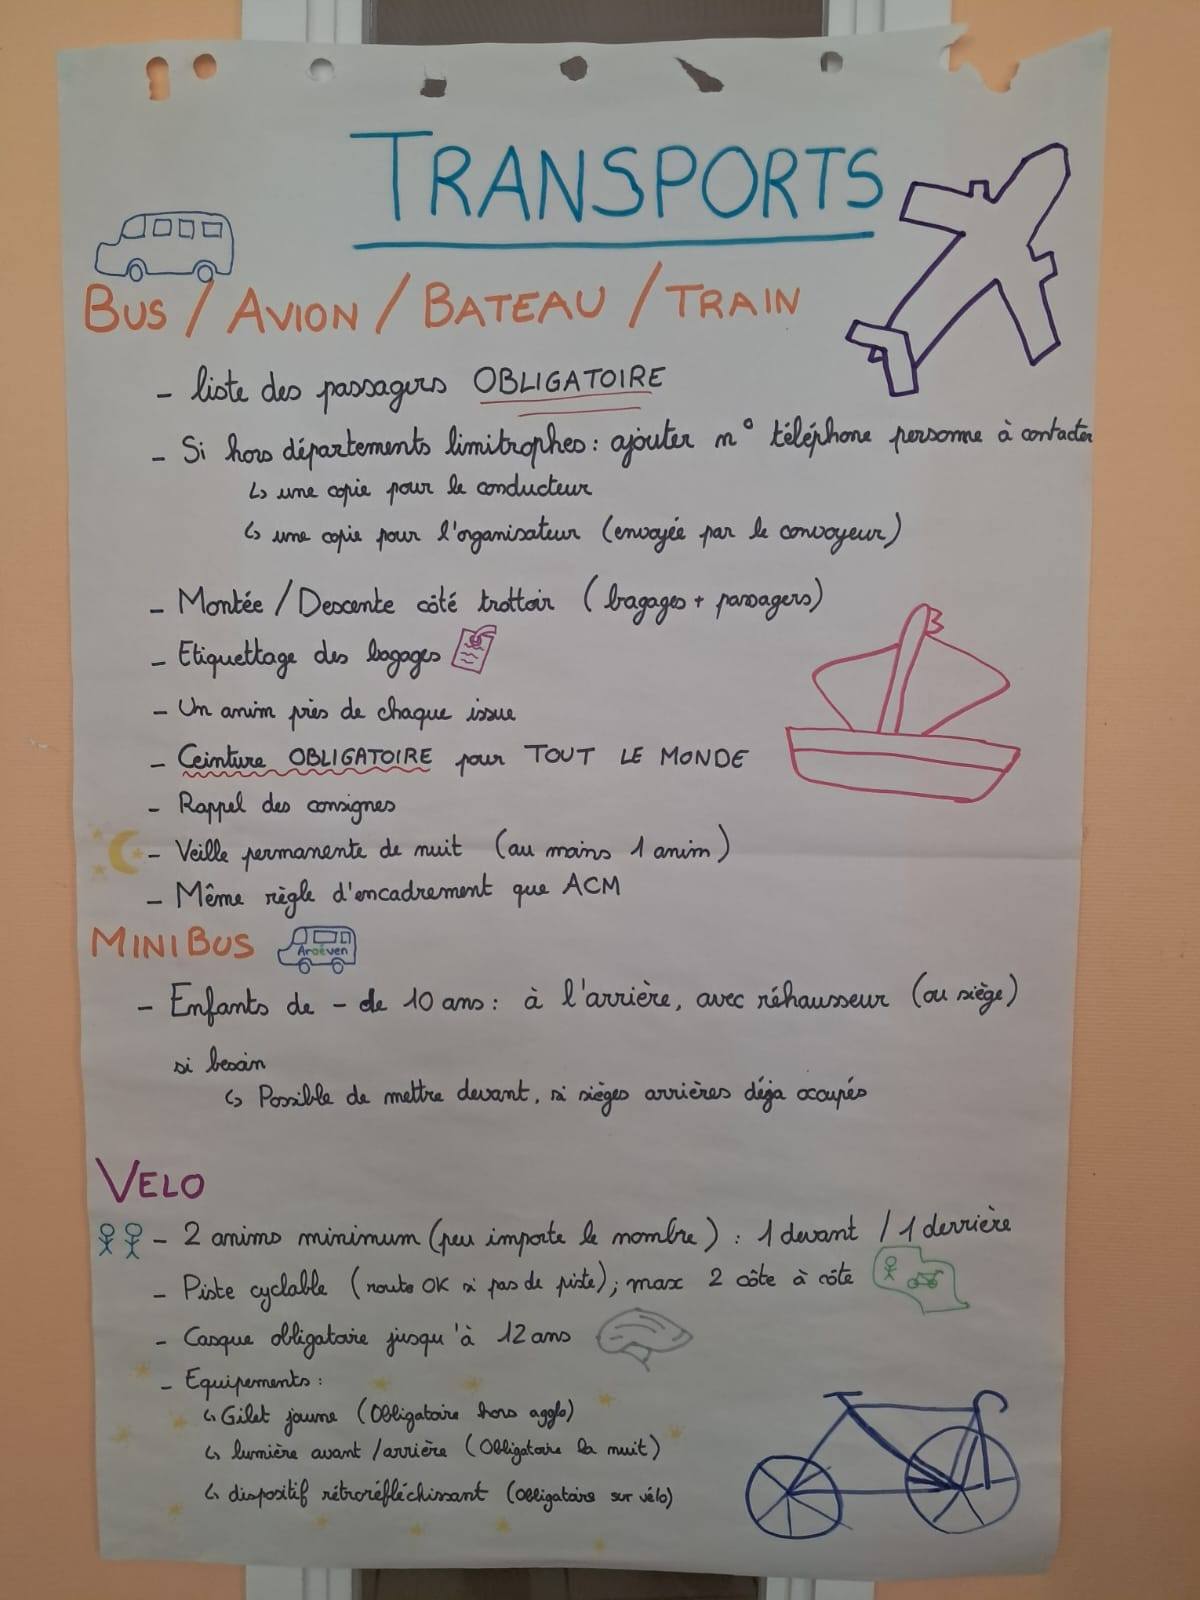 TRANSPORTS
BUS / AVION / BATEAU / TRAIN
- liste des passagers OBLIGATOIRE
- Si hors départements limitrophes : ajouter n° téléphone personne à contacter
↳ une copie pour le conducteur
↳ une copie pour l'organisateur (envoyée par le convoyeur)
- Montée / Descente côté trottoir (bagages + passagers)
- Etiquettage des bagages
- Un anim près de chaque issue
- Ceinture OBLIGATOIRE pour TOUT LE MONDE
- Rappel des consignes
- Veille permanente de nuit (au moins 1 anim)
- Même règle d'encadrement que ACM
MINIBUS
Aroéven
- Enfants de - de 10 ans : à l'arrière, avec réhausseur (ou siège)
si besoin
↳ Possible de mettre devant, si sièges arrières déja occupés
VELO
- 2 anims minimum (peu importe le nombre) : 1 devant / 1 derrière
- Piste cyclable (route OK si pas de piste) ; max 2 côte à côte
- Casque obligatoire jusqu'à 12 ans
- Equipements :
↳ Gilet jaune (Obligatoire hors agglo)
↳ lumière avant / arrière (Obligatoire la nuit)
↳ dispositif rétroréfléchissant (Obligatoire sur vélo)